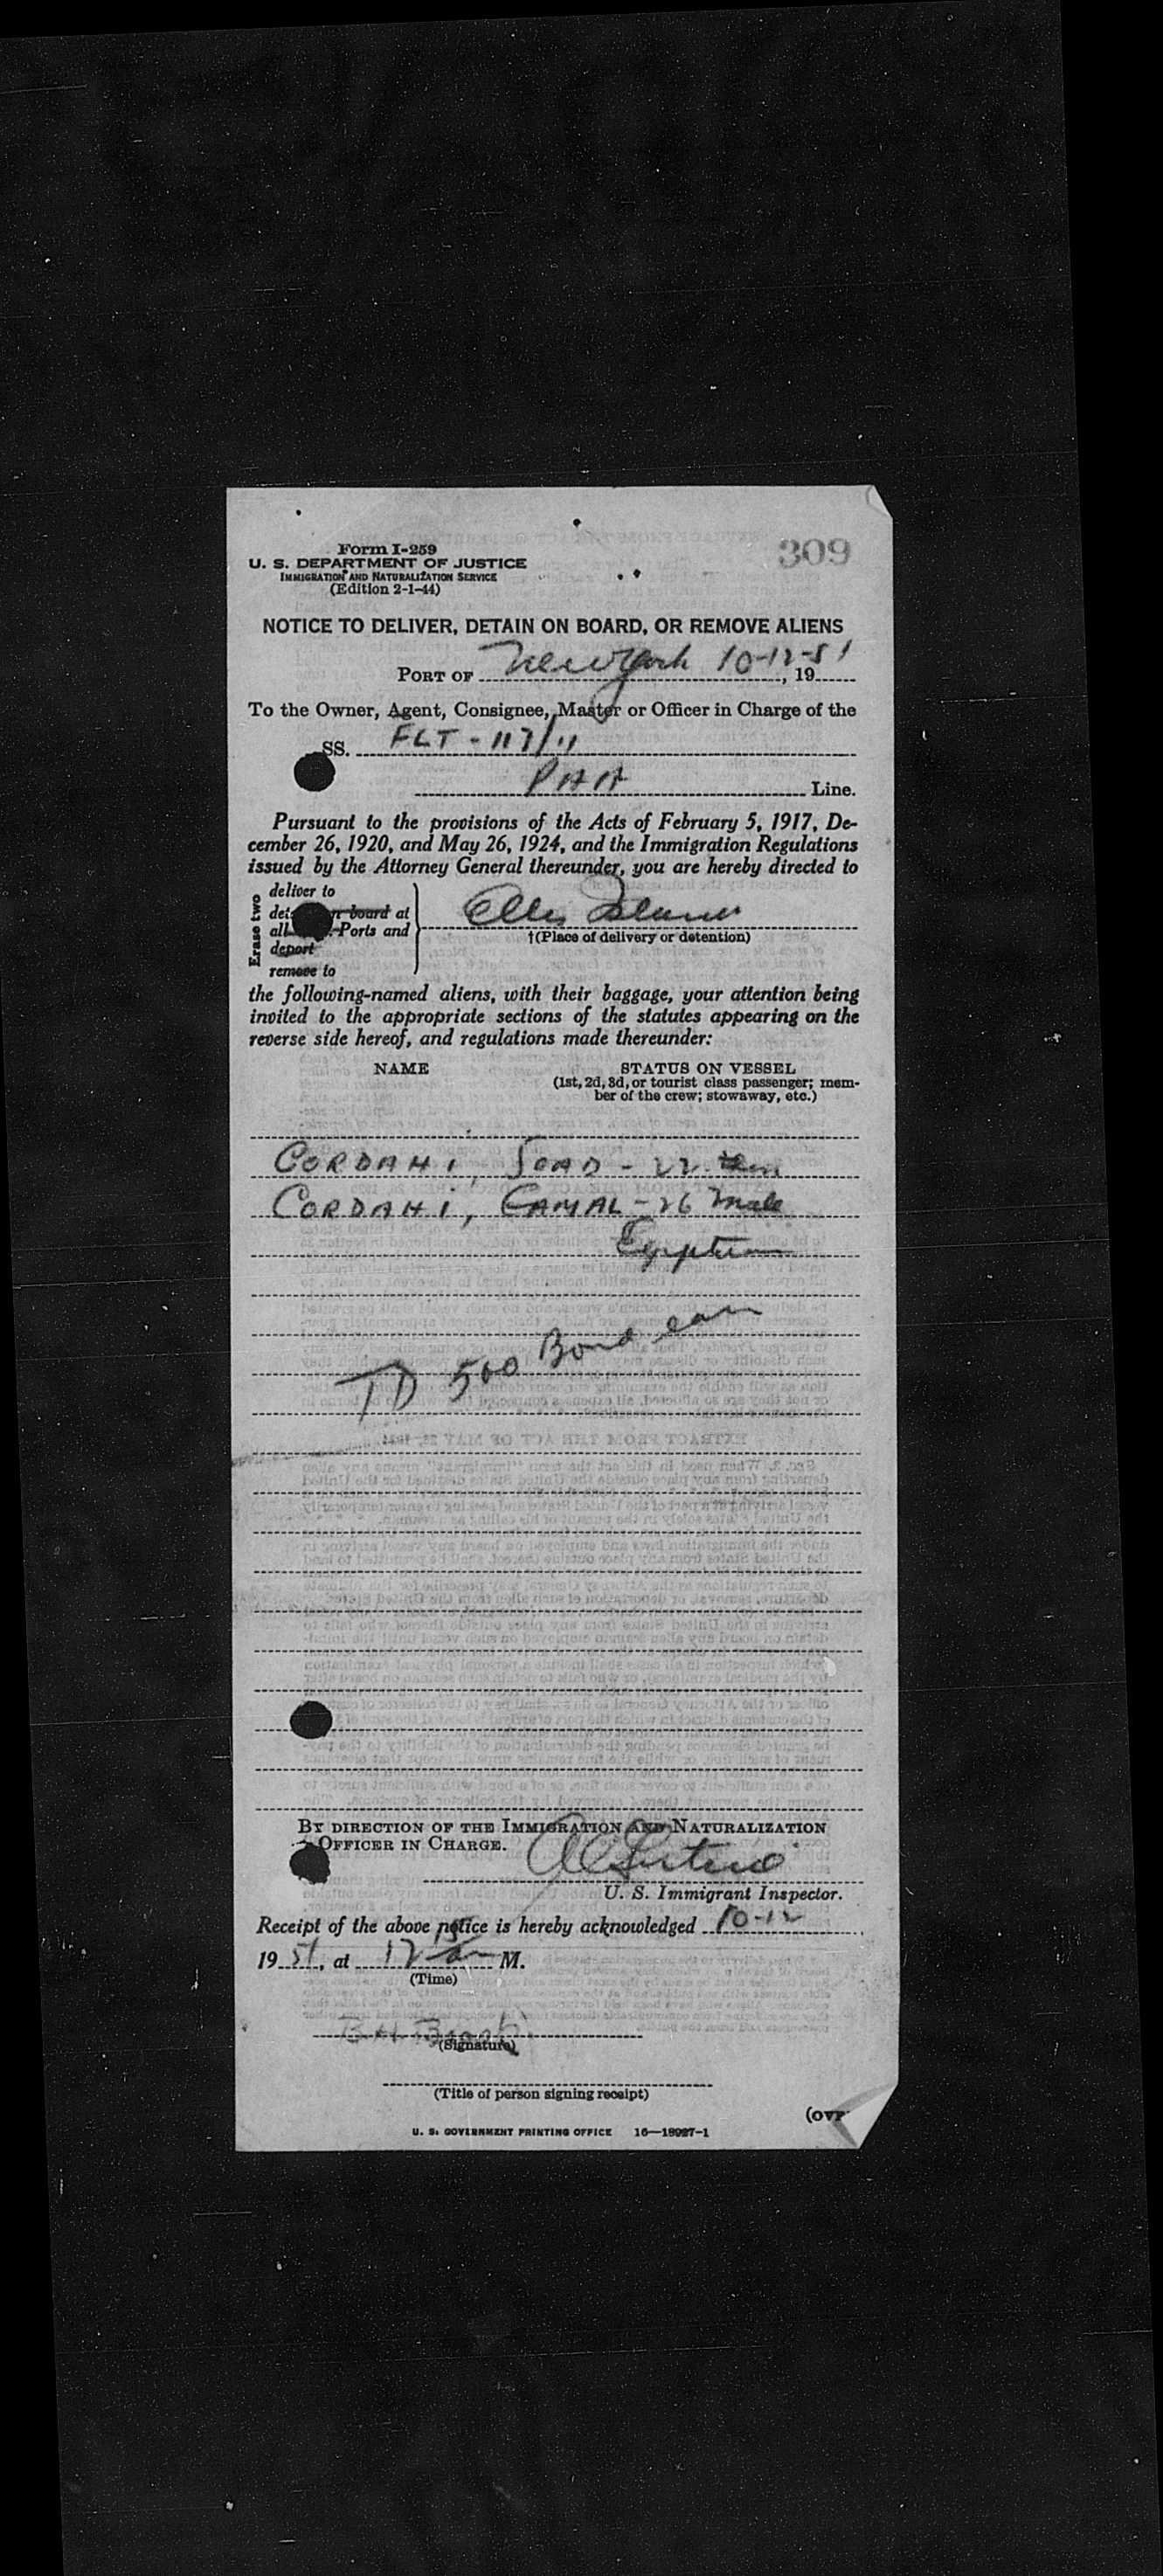 309
Form I-259
U. S. DEPARTMENT OF JUSTICE
IMMIGRATION AND NATURALIZATION SERVICE
(Edition 2-1-44)
NOTICE TO DELIVER, DETAIN ON BOARD, OR REMOVE ALIENS
PORT OF New York 10-12-51, 19
To the Owner, Agent, Consignee, Master or Officer in Charge of the
SS. FLT - 117/11
PAA Line.
Pursuant to the provisions of the Acts of February 5, 1917, De-
cember 26, 1920, and May 26, 1924, and the Immigration Regulations
issued by the Attorney General thereunder, you are hereby directed to
Erase two
deliver to
board at
Ports and
deport
remove to
Ellis Island
†(Place of delivery or detention)
the following-named aliens, with their baggage, your attention being
invited to the appropriate sections of the statutes appearing on the
reverse side hereof, and regulations made thereunder:
NAME STATUS ON VESSEL
(1st, 2d, 3d, or tourist class passenger; mem-
ber of the crew; stowaway, etc.)
CORDAHI, SOAD - 22
CORDAHI, GAMAL - 26 Male
Egyptian
TD 500 Bond
BY DIRECTION OF THE IMMIGRATION AND NATURALIZATION
OFFICER IN CHARGE.
U. S. Immigrant Inspector.
Receipt of the above notice is hereby acknowledged 10-12
1951, at 12 15 M.
(Time)
(Signature)
(Title of person signing receipt)
U. S. GOVERNMENT PRINTING OFFICE 16—18927-1